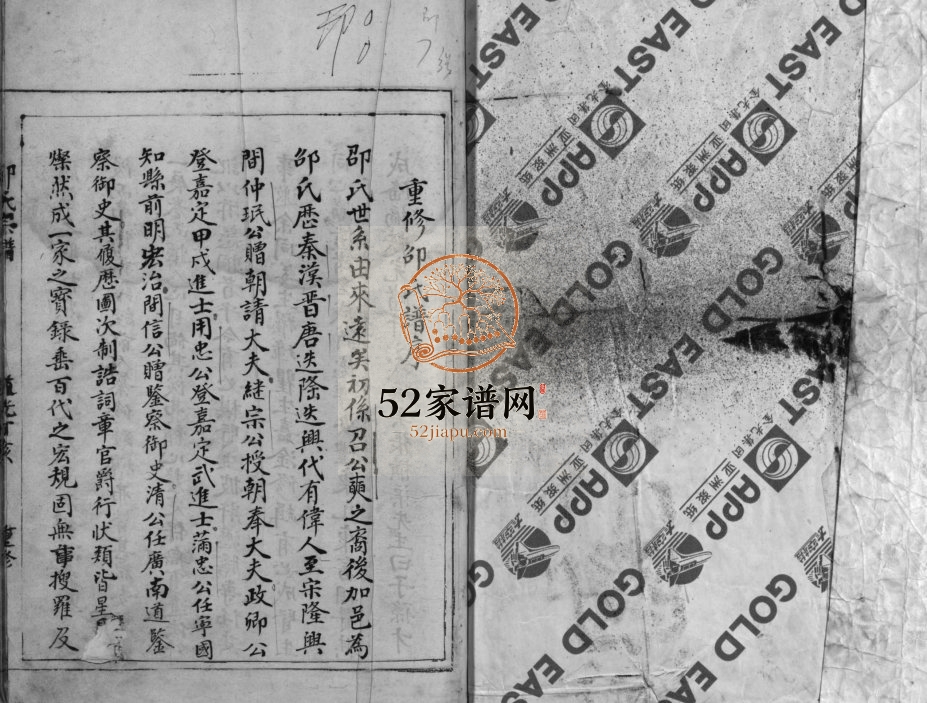 重修邵氏譜序
邵氏世系由來遠矣初係召公奭之裔後加邑為
邵氏歷秦漢晉唐迭隆迭興代有偉人至宋隆興
間仲珉公贈朝請大夫繼宗公授朝奉大夫政卿公
登嘉定甲戌進士用忠公登嘉定武進士蒲忠公任寧國
知縣前明宏治間信公贈鑒察御史清公任廣南道鑒
察御史其履歷圖次制誥詞章官爵行狀類皆星
燦然成一家之寶錄垂百代之宏規固無事搜羅及
邵氏宗譜
重修
52家谱网
52jiapu.com
APP
金光集团
亚洲浆纸
GOLD EAST
大亚造纸